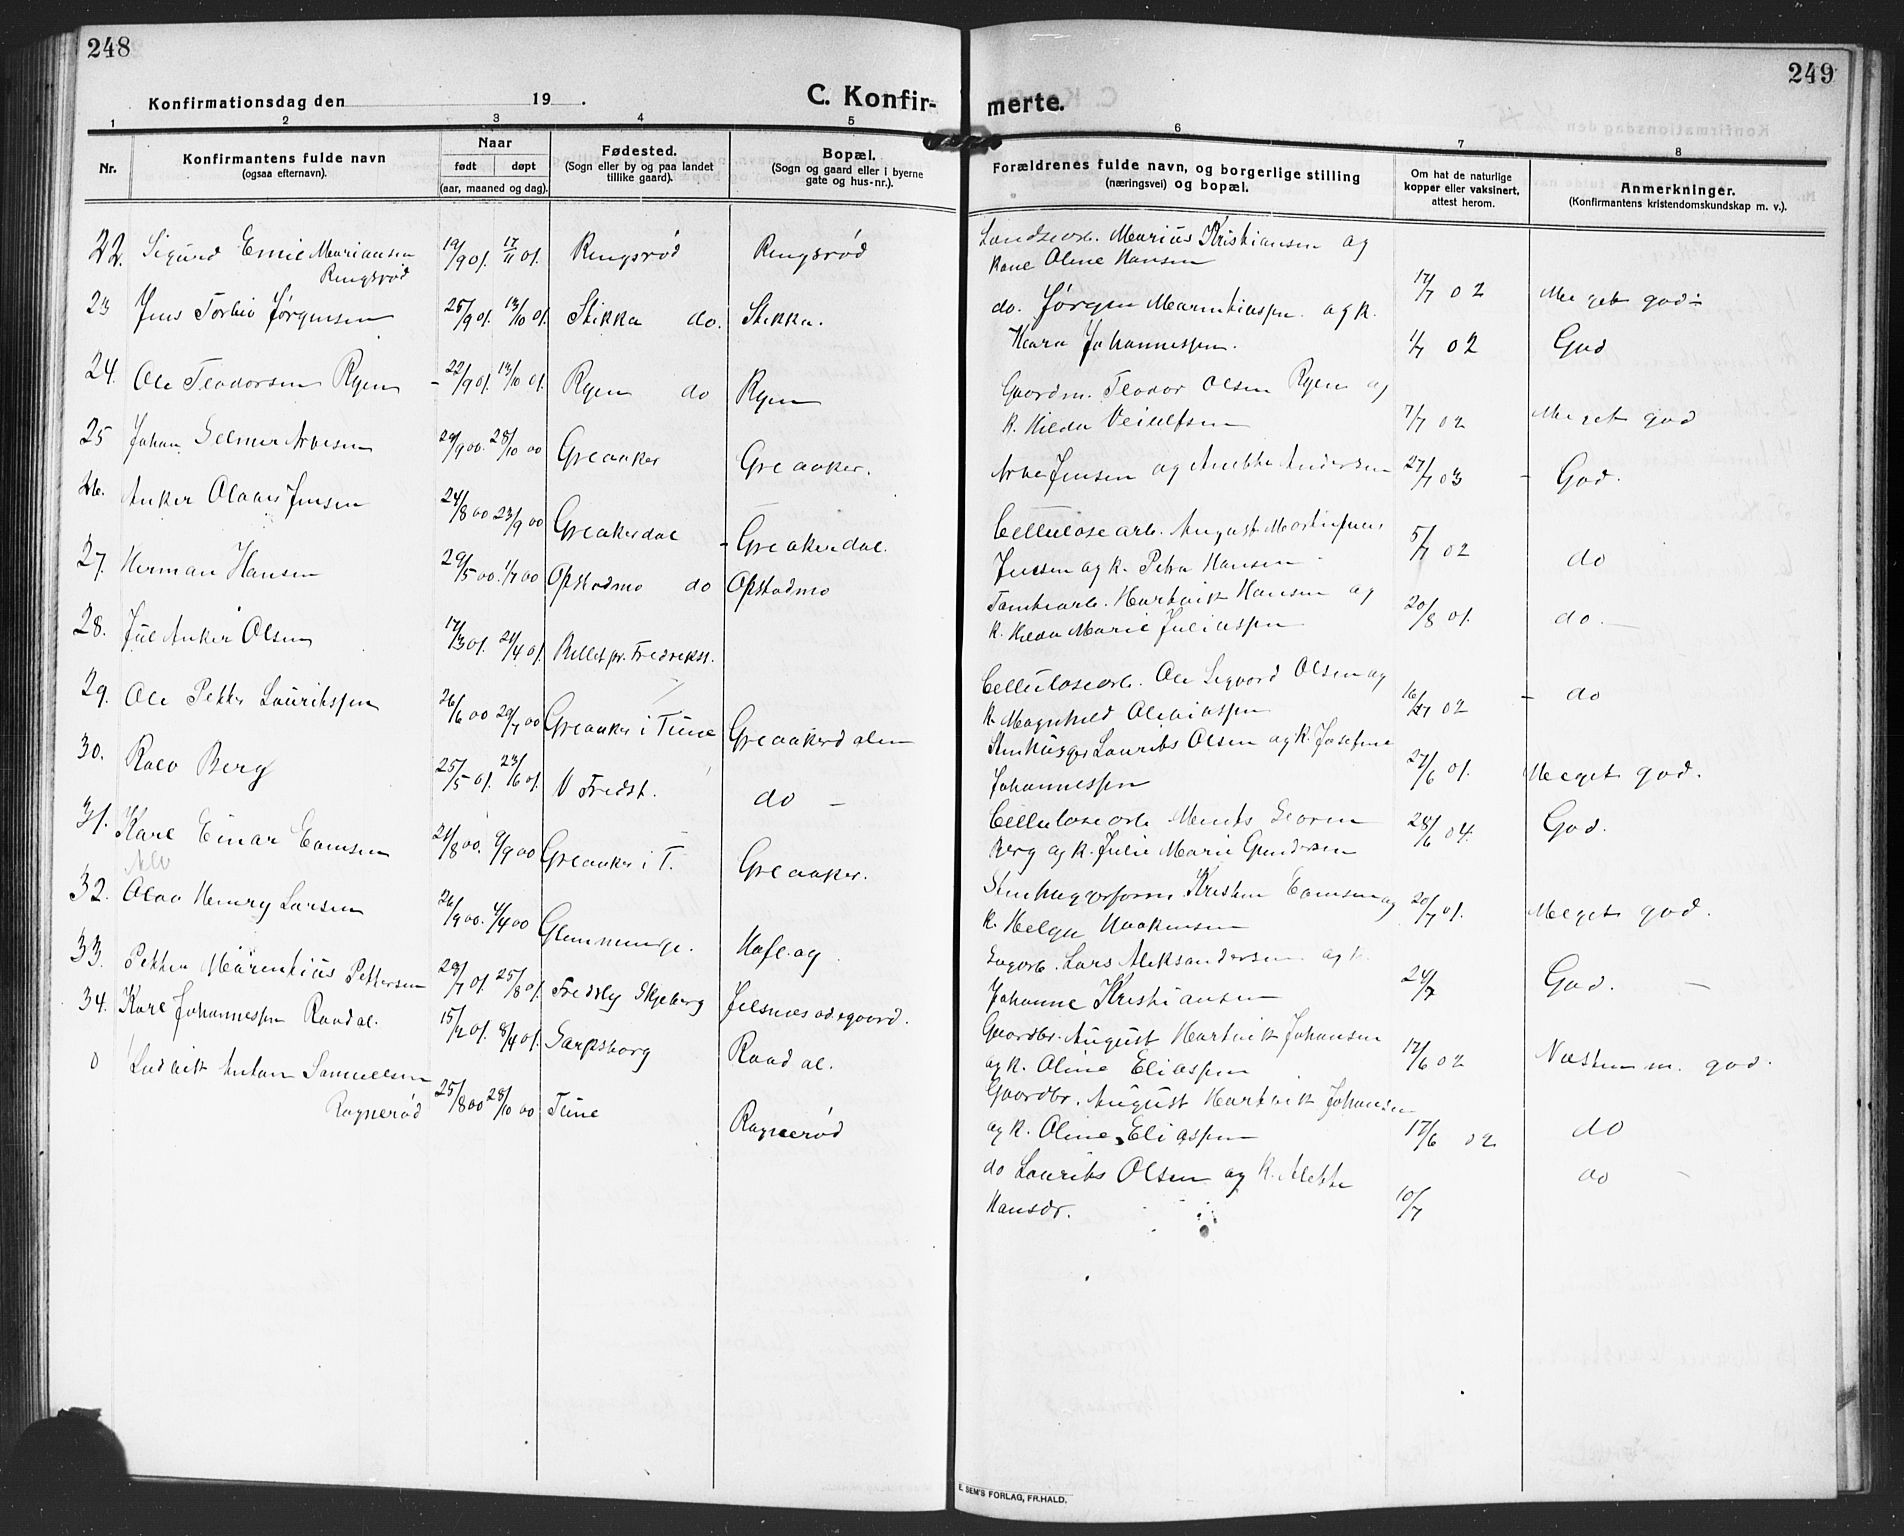 248
249
Konfirmationsdag den 19 .
C. Konfir-
merte.
1 2 3 4 5 6 7 8
Nr.
Konfirmantens fulde navn
(ogsaa efternavn).
Naar
født døpt
(aar, maaned og dag).
Fødested.
(Sogn eller by og paa landet
tillike gaard).
Bopæl.
(Sogn og gaard eller i byerne
gate og hus-nr.).
Forældrenes fulde navn, og borgerlige stilling
(næringsvei) og bopæl.
Om hat de naturlige
kopper eller vaksinert,
attest herom.
Anmerkninger.
(Konfirmantens kristendomskundskap m. v.).
22. Sigurd Emil Mariansen 19/9 01. 17/11 01. Ringsrød Ringsrød
Ringsrød
23 Jens Torleif Jørgensen 25/9 01. 13/10 01. Stikka do. Stikka.
24. Ole Teodorsen Ryen 22/9 01. 13/10 01. Ryen do Ryen
25 Johan Selmer Arvesen 29/9 00. 28/10 00 Greaaker Greaaker.
26. Anker Olaves Jensen 24/8 00 23/9 00 Greakerdal Greakerdal.
27. Herman Hansen 29/5 00. 1/7 00 Opstadmo do Opstadmo
28. Jul Anker Olsen 17/3 01. 21/4 01. pr. Fredrikst.
29. Ole Petter Lauritssen 26/6 00 29/7 00 Greaaker i Tune Greaakerdalen
30. Ralv Berg 25/5 01. 23/6 01. V Fredst. do
31. Karl Einar Evensen 21/8 00. 9/9 00 Greaaker i T. Greaaker.
32. Olav Henry Larsen 26/9 00. 4/4 00 Glemminge. Hafslag
33. Petter Marentius Pettersen 29/7 01. 25/8 01. Fredly Skjeberg Jelsnesødegaard.
34. Karl Johannessen Raadal. 15/2 01. 8/4 01. Sarpsborg Raadal.
0 Ludvik Anton Samuelsen
Ragnerød 25/8 00 28/10 00 Tune Ragnerød
Marius Kristiansen og
kone Oline Hansen 17/7 02 Meget god
do. Jørgen Marentiussen. og k.
Kara Johannessen. 1/7 02 God
Gaardm. Teodor Olsen Ryen og
k. Hilda Veiulfsen 7/7 02 Meget god
Arve Jensen og Anette Andersen 27/7 03 God.
Cellulosearb. August Martinsens
Jensen og k. Petra Hansen 5/7 02 do
Tomtearb. Hartvik Hansen og
k. Hilda Marie Juliassen 20/8 01. do.
Cellulosearb. Ole Sigvard Olsen og
k. Magnhild Oliviassen 02 do
Stenhugger Laurits Olsen og k. Josefine
Johannessen 27/6 01. Meget god.
Cellulosearb Georn
Berg og k. Julie Marie Gundersen 28/6 04. God.
Kristen Evensen og
k. Helga Haakensen 20/7 01. Meget god.
Sagarb. Lars Aleksandersen og k.
Johanne Kristiansen 24/7 God.
Gaardbr. August Hartvik Johansen
og k. Oline Eliassen 17/6 02 Næsten m. god.
Gaardbr. August Hartvik Johansen
og k. Oline Eliassen 17/6 02 do
do Laurits Olsen og k. Mette
Hansdr. 10/7 do
E. SEM'S FORLAG, FR.HALD.